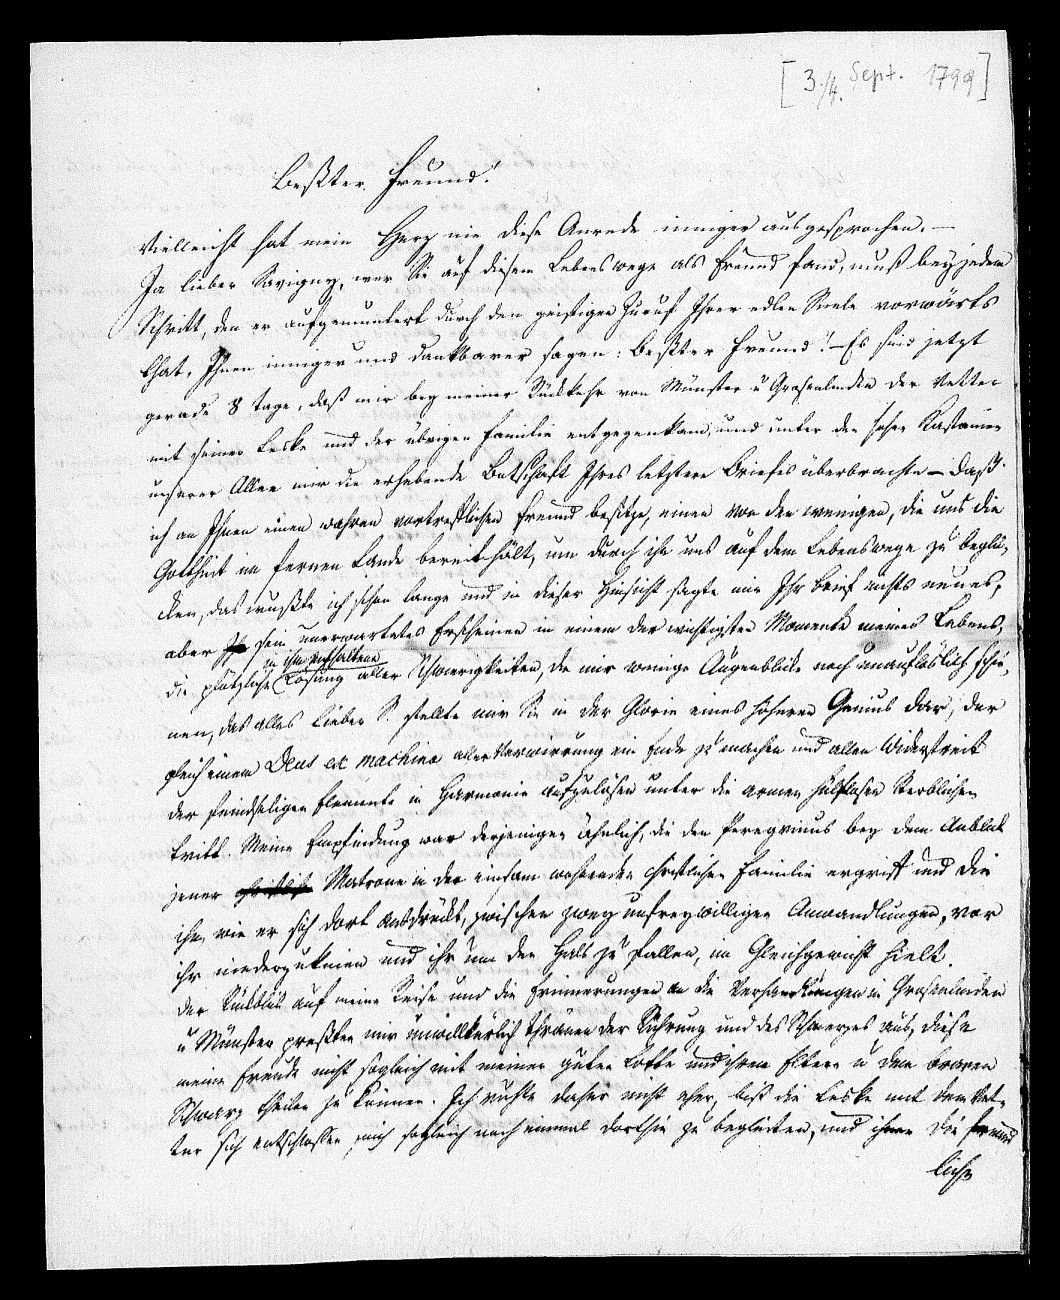 [3./4. Sept. 1799]
Beßter Freund!
Vielleicht hat mein Herz nie diese Anrede inniger ausgesprochen. –
Ja lieber Savigny, wer Sie auf diesem Lebenswege als Freund fand, muß bey jedem
Schritt, den er aufgemuntert durch den geistigen Zuruf Ihrer edlen Seele vorwärts
that, Ihnen inniger und dankbarer sagen: Beßter Freund! – Es sind jetzt
gerade 8 tage, daß mir bey meiner Rückkehr von Münster u Grosenlinden der Vetter
mit seiner Leske und der übrigen Familie entgegenkam, und unter den hohen Kastanien
unserer Allee mir die erhebende Botschaft Ihres letztern Briefes überbrachte – daß
ich an Ihnen einen wahren vortreflichen Freund besitze, einen von den wenigen, die uns die
Gottheit im fernen Lande bereit hält, um durch ihn uns auf dem Lebenswege zu beglü-
cken, das wußte ich schon lange und in dieser Hinsicht sagte mir Ihr brief nichts neues,
aber sein unerwartetes Erscheinen in einem der wichtigsten Momente meines Lebens,
die plötzliche in ihm enthaltene Lösung aller Schwierigkeiten, die mir wenige Augenblicke noch unauflöslich schie-
nen, das alles lieber S. stellte mir Sie in der Glorie eines höheren Genius dar, der
gleich einem Deus ex machina aller Verwirrung ein Ende zu machen und allen Widerstreit
der feindseligen Elemente in Harmonie aufzulösen unter die armen hülflosen Sterblichen
tritt. Meine Empfindung war derjenigen ähnlich, die den Peregrinus bey dem Anblick
jener Matrone in der einsam wohnenden christlichen Familie ergriff und die
ihn, wie er sich dort ausdrückt, zwischen zwey unfreywilligen Anwandlungen, vor
ihr niederzuknien und ihr um den Hals zu fallen, im Gleichgewicht hielt.
Der Rückblick auf meine Reise und die Erinnerungen an die Verhandlungen in Grosenlinden
u Münster preßten mir unwillkerlich thränen der Rührung und des Schmerzes aus, diese
meine Freude nicht sogleich mit meiner guten Lotte und ihren Eltern u dem braven
Schwarz theilen zu können. Ich ruhte daher nicht eher, biß die Leske mit dem Vet-
ter sich entschlossen, mich sogleich noch einmal dorthin zu begleiten, und ihnen die freund
liche